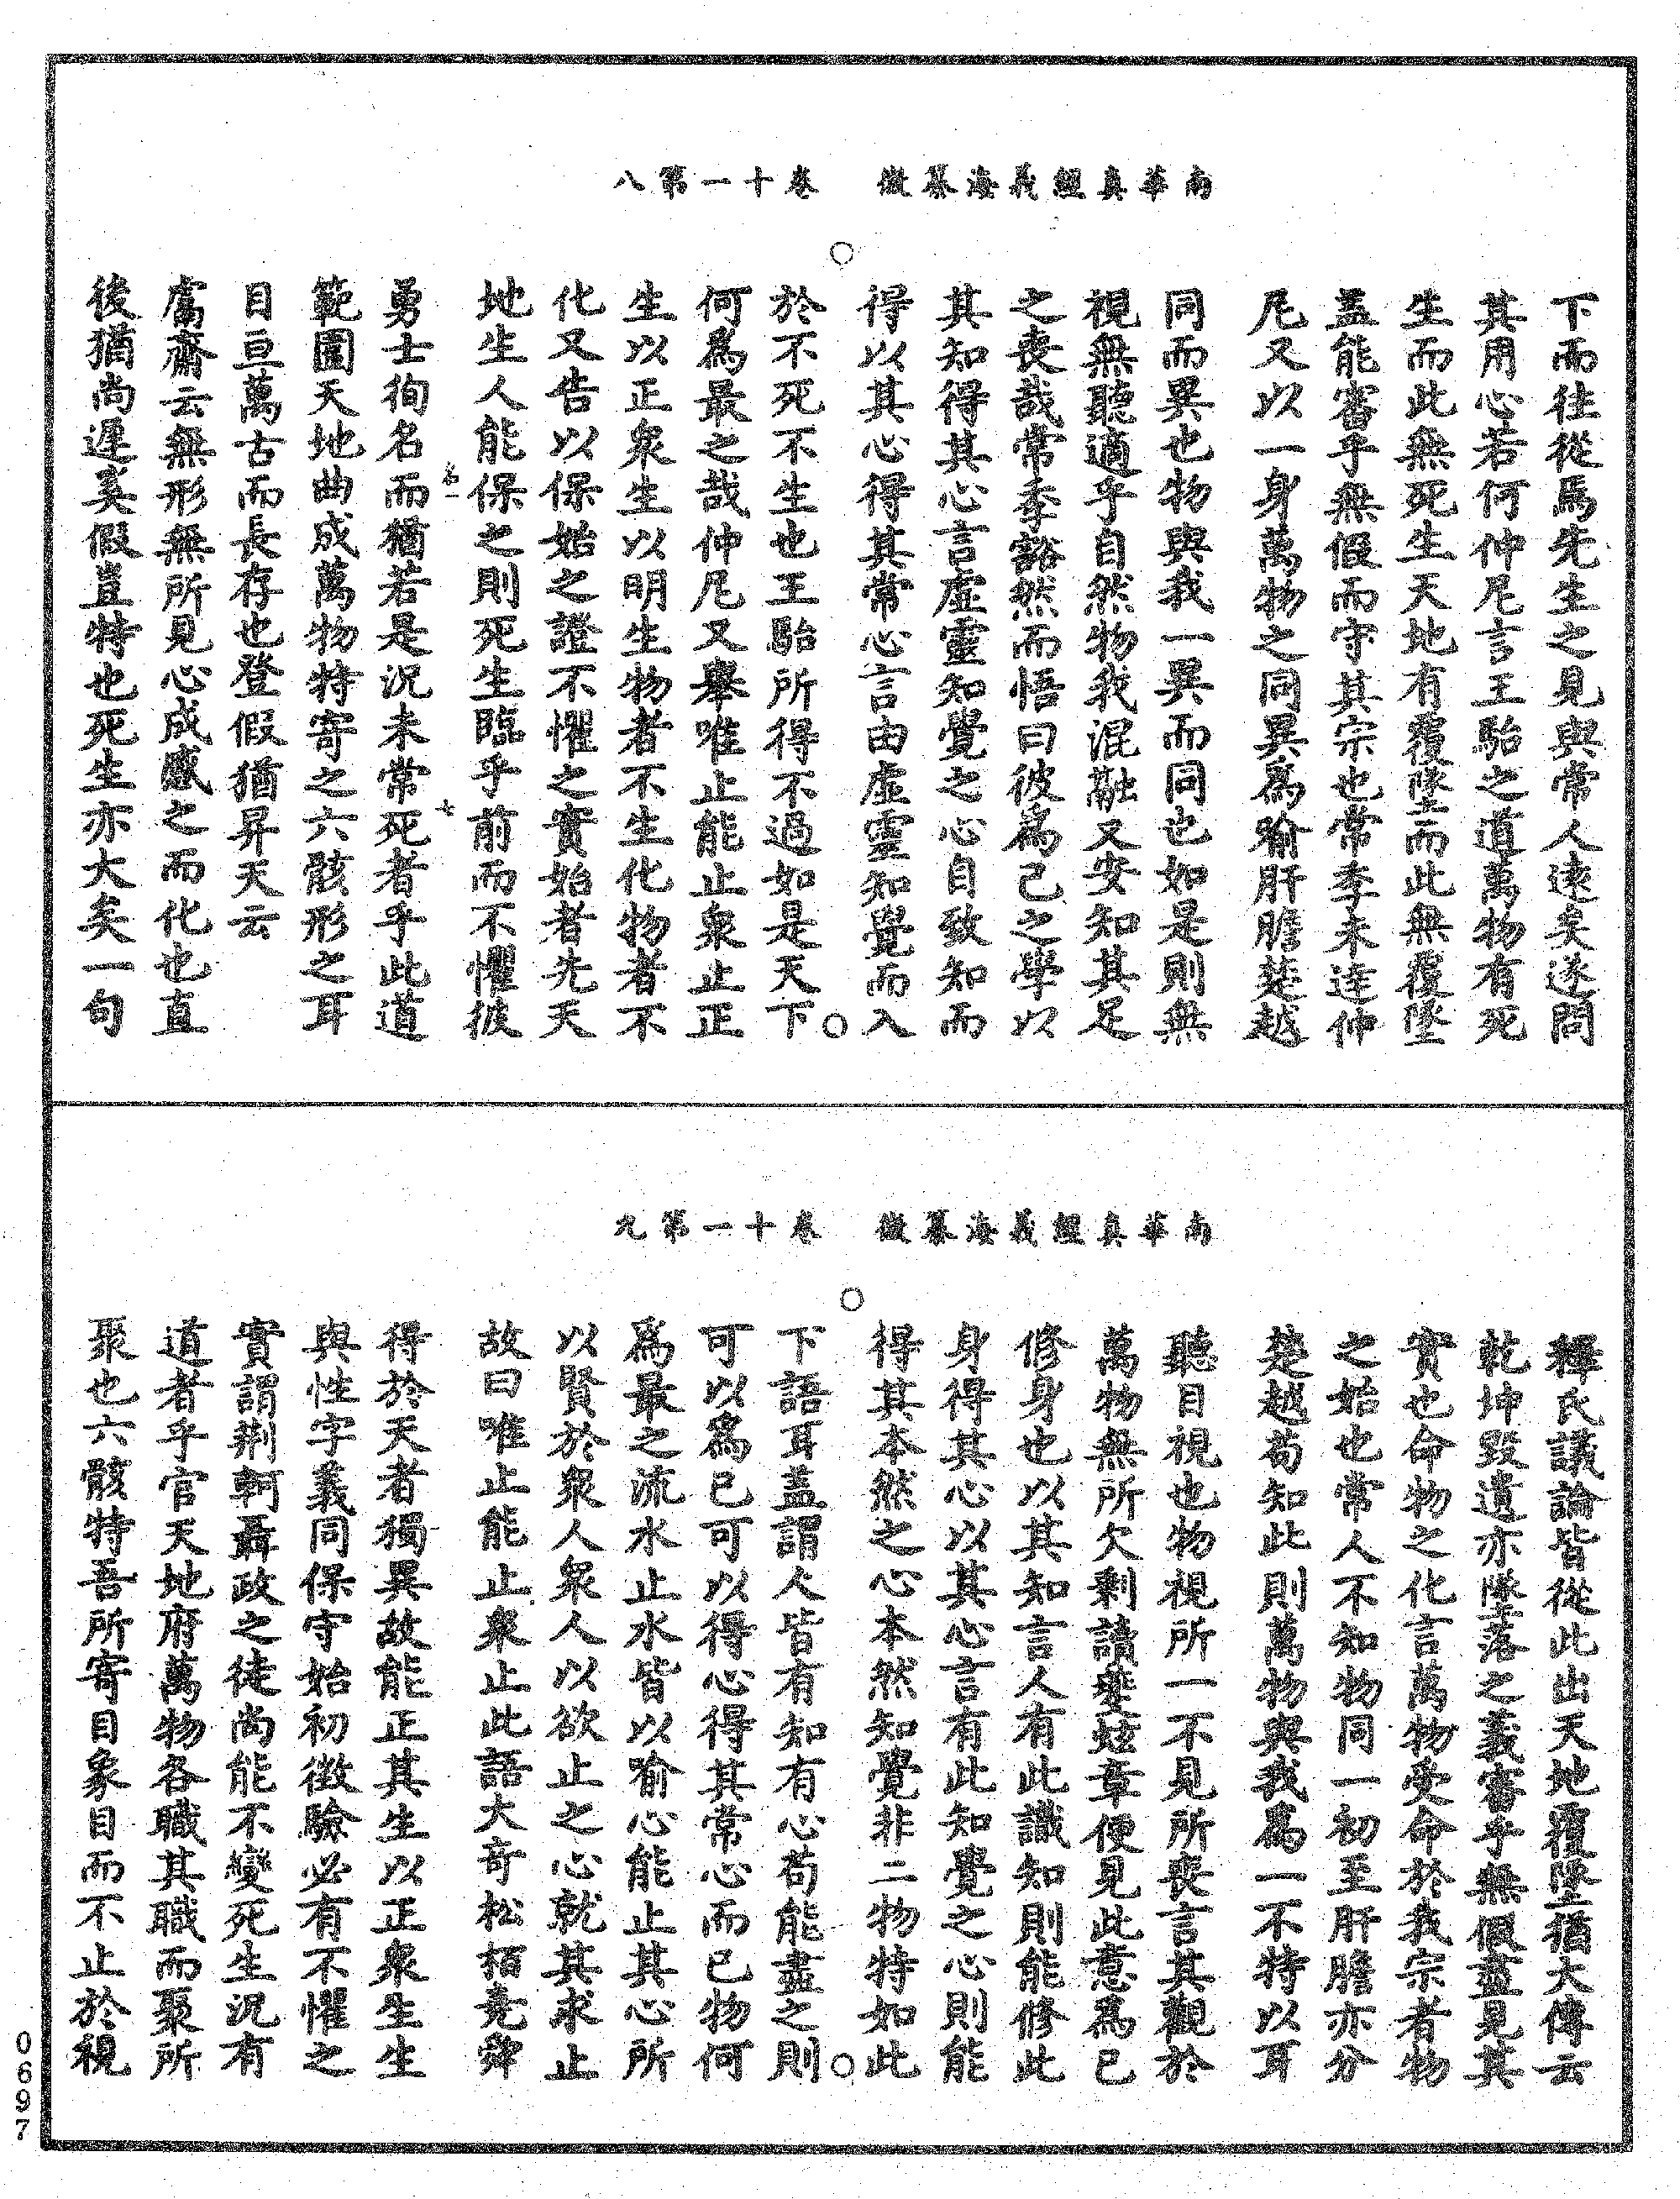 南華真經義海纂微　卷十一第八
下而往從焉先生之見與常人遠矣遂問
其用心若何仲尼言王駘之道萬物有死
生而此無死生天地有覆墜而此無覆墜
蓋能審乎無假而守其宗也常季未達仲
尼又以一身萬物之同異爲喻肝膽楚越
同而異也物與我一異而同也如是則無
視無聽適乎自然物我混融又安知其足
之喪哉常季豁然而悟曰彼爲己之學以
其知得其心言虛靈知覺之心自致知而
得以其心得其常心言由虛靈知覺而入
於不死不生也王駘所得不過如是天下
何爲最之哉仲尼又舉唯止能止衆止正
生以正衆生以明生物者不生化物者不
化又告以保始之證不懼之實始者先天
地生人能保之則死生臨乎前而不懼彼
勇士徇名而猶若是況未常死者乎此道
範圍天地曲成萬物特寄之六骸形之耳
目亘萬古而長存也登假猶昇天云
鬳齋云無形無所見心成感之而化也直
後猶尚遲奚假豈特也死生亦大矣一句
南華真經義海纂微　卷十一第九
釋氏議論皆從此出天地覆墜猶大傳云
乾坤毀遺亦墜落之義審乎無假盡見其
實也命物之化言萬物受命於我宗者物
之始也常人不知物同一初至肝膽亦分
楚越苟知此則萬物與我爲一不特以耳
聽目視也物視所一不見所喪言其觀於
萬物無所欠剩讀夔蚿章便見此意爲己
修身也以其知言人有此識知則能修此
身得其心以其心言有此知覺之心則能
得其本然之心本然知覺非二物特如此
下語耳蓋謂人皆有知有心苟能盡之則
可以爲己可以得心得其常心而已物何
爲最之流水止水皆以喻心能止其心所
以賢於衆人衆人以欲止之心就其求止
故曰唯止能止衆止此語大奇松栢堯舜
得於天者獨異故能正其生以正衆生生
與性字義同保守始初徵驗必有不懼之
實謂荆軻聶政之徒尚能不變死生況有
道者乎官天地府萬物各職其職而聚所
聚也六骸特吾所寄目象目而不止於視
0697